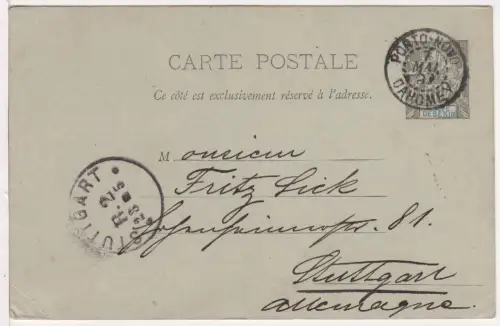 CARTE POSTALE
Ce côté est exclusivement réservé à l'adresse.
PORTO-NOVO
MAI
DAHOMEY
BÉNIN
STUTTGART
Monsieur
Fritz Sick
81.
Stuttgart
Allemagne.